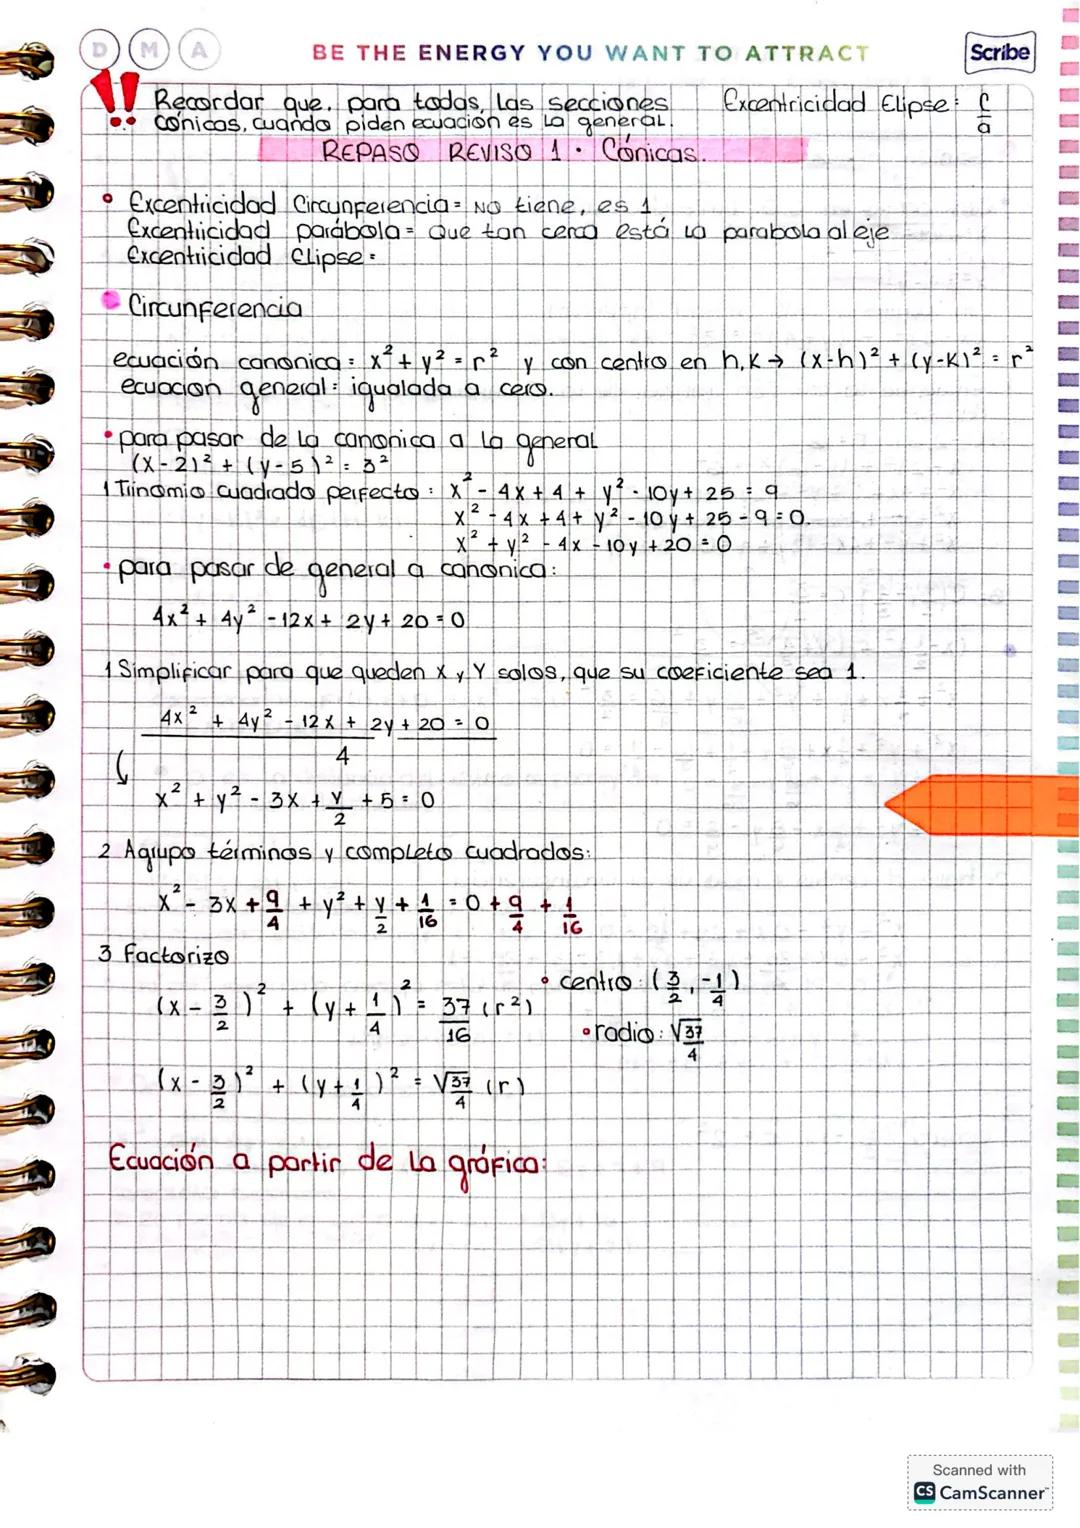 D M A
BE THE ENERGY YOU WANT TO ATTRACT
Scribe
!! Recordar que, para todas, las secciones
cónicas, cuando piden ecuación es la general.
Excentricidad Elipse: c/a
REPASO REVISO 1. Cónicas.
• Excentricidad Circunferencia = No tiene, es 1
Excentricidad parábola = Que tan cerca está la parabola al eje
Excentricidad Elipse =
Circunferencia
ecuación canonica: x² + y² = r² y con centro en h,k → (x-h)² + (y-k)² = r²
ecuacion general: igualada a cero.
• para pasar de la canonica a la general
(x-2)² + (y-5)² = 3²
1 Trinomio cuadrado perfecto: x² - 4x + 4 + y² - 10y + 25 = 9
x² - 4x + 4 + y² - 10y + 25 - 9 = 0.
x² + y² - 4x - 10y + 20 = 0
• para pasar de general a canonica:
4x² + 4y² - 12x + 2y + 20 = 0
1 Simplificar para que queden x y Y solos, que su coeficiente sea 1.
4x² + 4y² - 12x + 2y + 20 = 0
4
x² + y² - 3x + y/2 + 5 = 0
2 Agrupo términos y completo cuadrados:
x² - 3x + 9/4 + y² + y/2 + 1/16 = 0 + 9/4 + 1/16
3 Factorizo
(x - 3/2)² + (y + 1/4)² = 37/16 (r²)
• centro: (3/2, -1/4)
• radio: √37/4
(x - 3/2)² + (y + 1/4)² = √37/4 (r)
Ecuación a partir de la gráfica:
Scanned with
CS CamScanner